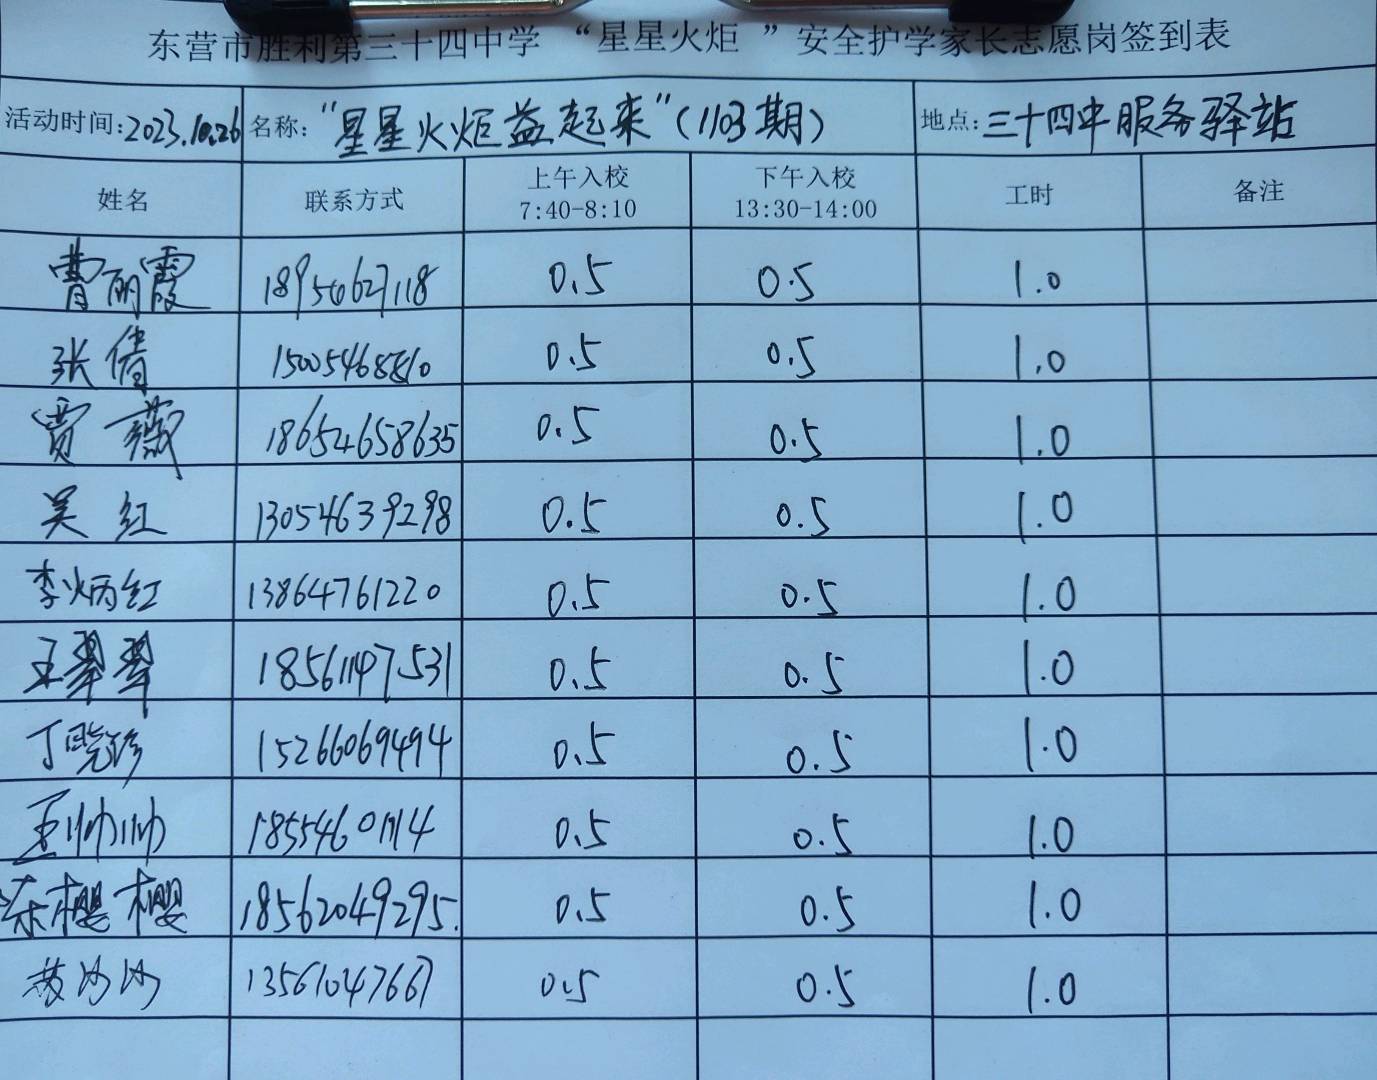 东营市胜利第三十四中学 “星星火炬 ”安全护学家长志愿岗签到表
活动时间:2023.10.26 名称:“星星火炬益起来”(1103期) 地点:三十四中服务驿站
姓名 联系方式 上午入校 7:40-8:10 下午入校 13:30-14:00 工时 备注
曹丽霞 18954627118 0.5 0.5 1.0
张倩 15005468810 0.5 0.5 1.0
贾薇 18654658635 0.5 0.5 1.0
吴红 13054639298 0.5 0.5 1.0
李炳红 13864761220 0.5 0.5 1.0
王翠翠 18561147531 0.5 0.5 1.0
丁晓珍 15266069494 0.5 0.5 1.0
王帅帅 0.5 0.5 1.0
樱樱 18562049295. 0.5 0.5 1.0
沙沙 13561047667 0.5 0.5 1.0